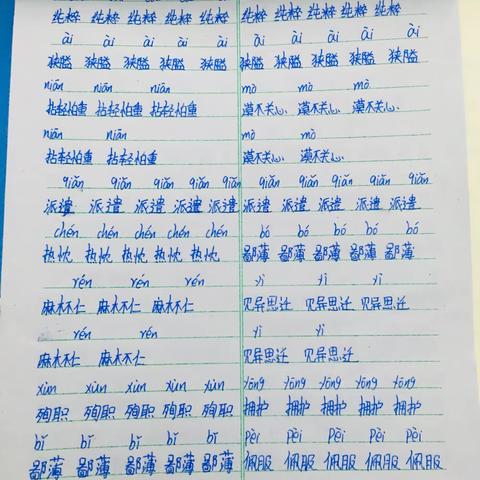 纯粹 纯粹 纯粹 纯粹 纯粹 纯粹 纯粹 纯粹 纯粹 纯粹
ài ài ài ài ài ài ài ài ài
狭隘 狭隘 狭隘 狭隘 狭隘 狭隘 狭隘 狭隘 狭隘
niān niān niān mò mò mò
拈轻怕重 拈轻怕重 拈轻怕重 漠不关心、漠不关心、漠不关心、
niān niān mò mò
拈轻怕重 拈轻怕重 漠不关心、漠不关心、
qiǎn qiǎn qiǎn qiǎn qiǎn qiǎn qiǎn qiǎn qiǎn qiǎn
派遣 派遣 派遣 派遣 派遣 派遣 派遣 派遣 派遣 派遣
chén chén chén chén chén bó bó bó bó bó
热忱 热忱 热忱 热忱 热忱 鄙薄 鄙薄 鄙薄 鄙薄 鄙薄
rén rén rén yì yì yì
麻木不仁 麻木不仁 麻木不仁 见异思迁 见异思迁 见异思迁
rén rén yì yì
麻木不仁 麻木不仁 见异思迁 见异思迁
xùn xùn xùn xùn xùn yōng yōng yōng yōng yōng
殉职 殉职 殉职 殉职 殉职 拥护 拥护 拥护 拥护 拥护
bǐ bǐ bǐ bǐ bǐ pèi pèi pèi pèi pèi
鄙薄 鄙薄 鄙薄 鄙薄 鄙薄 佩服 佩服 佩服 佩服 佩服